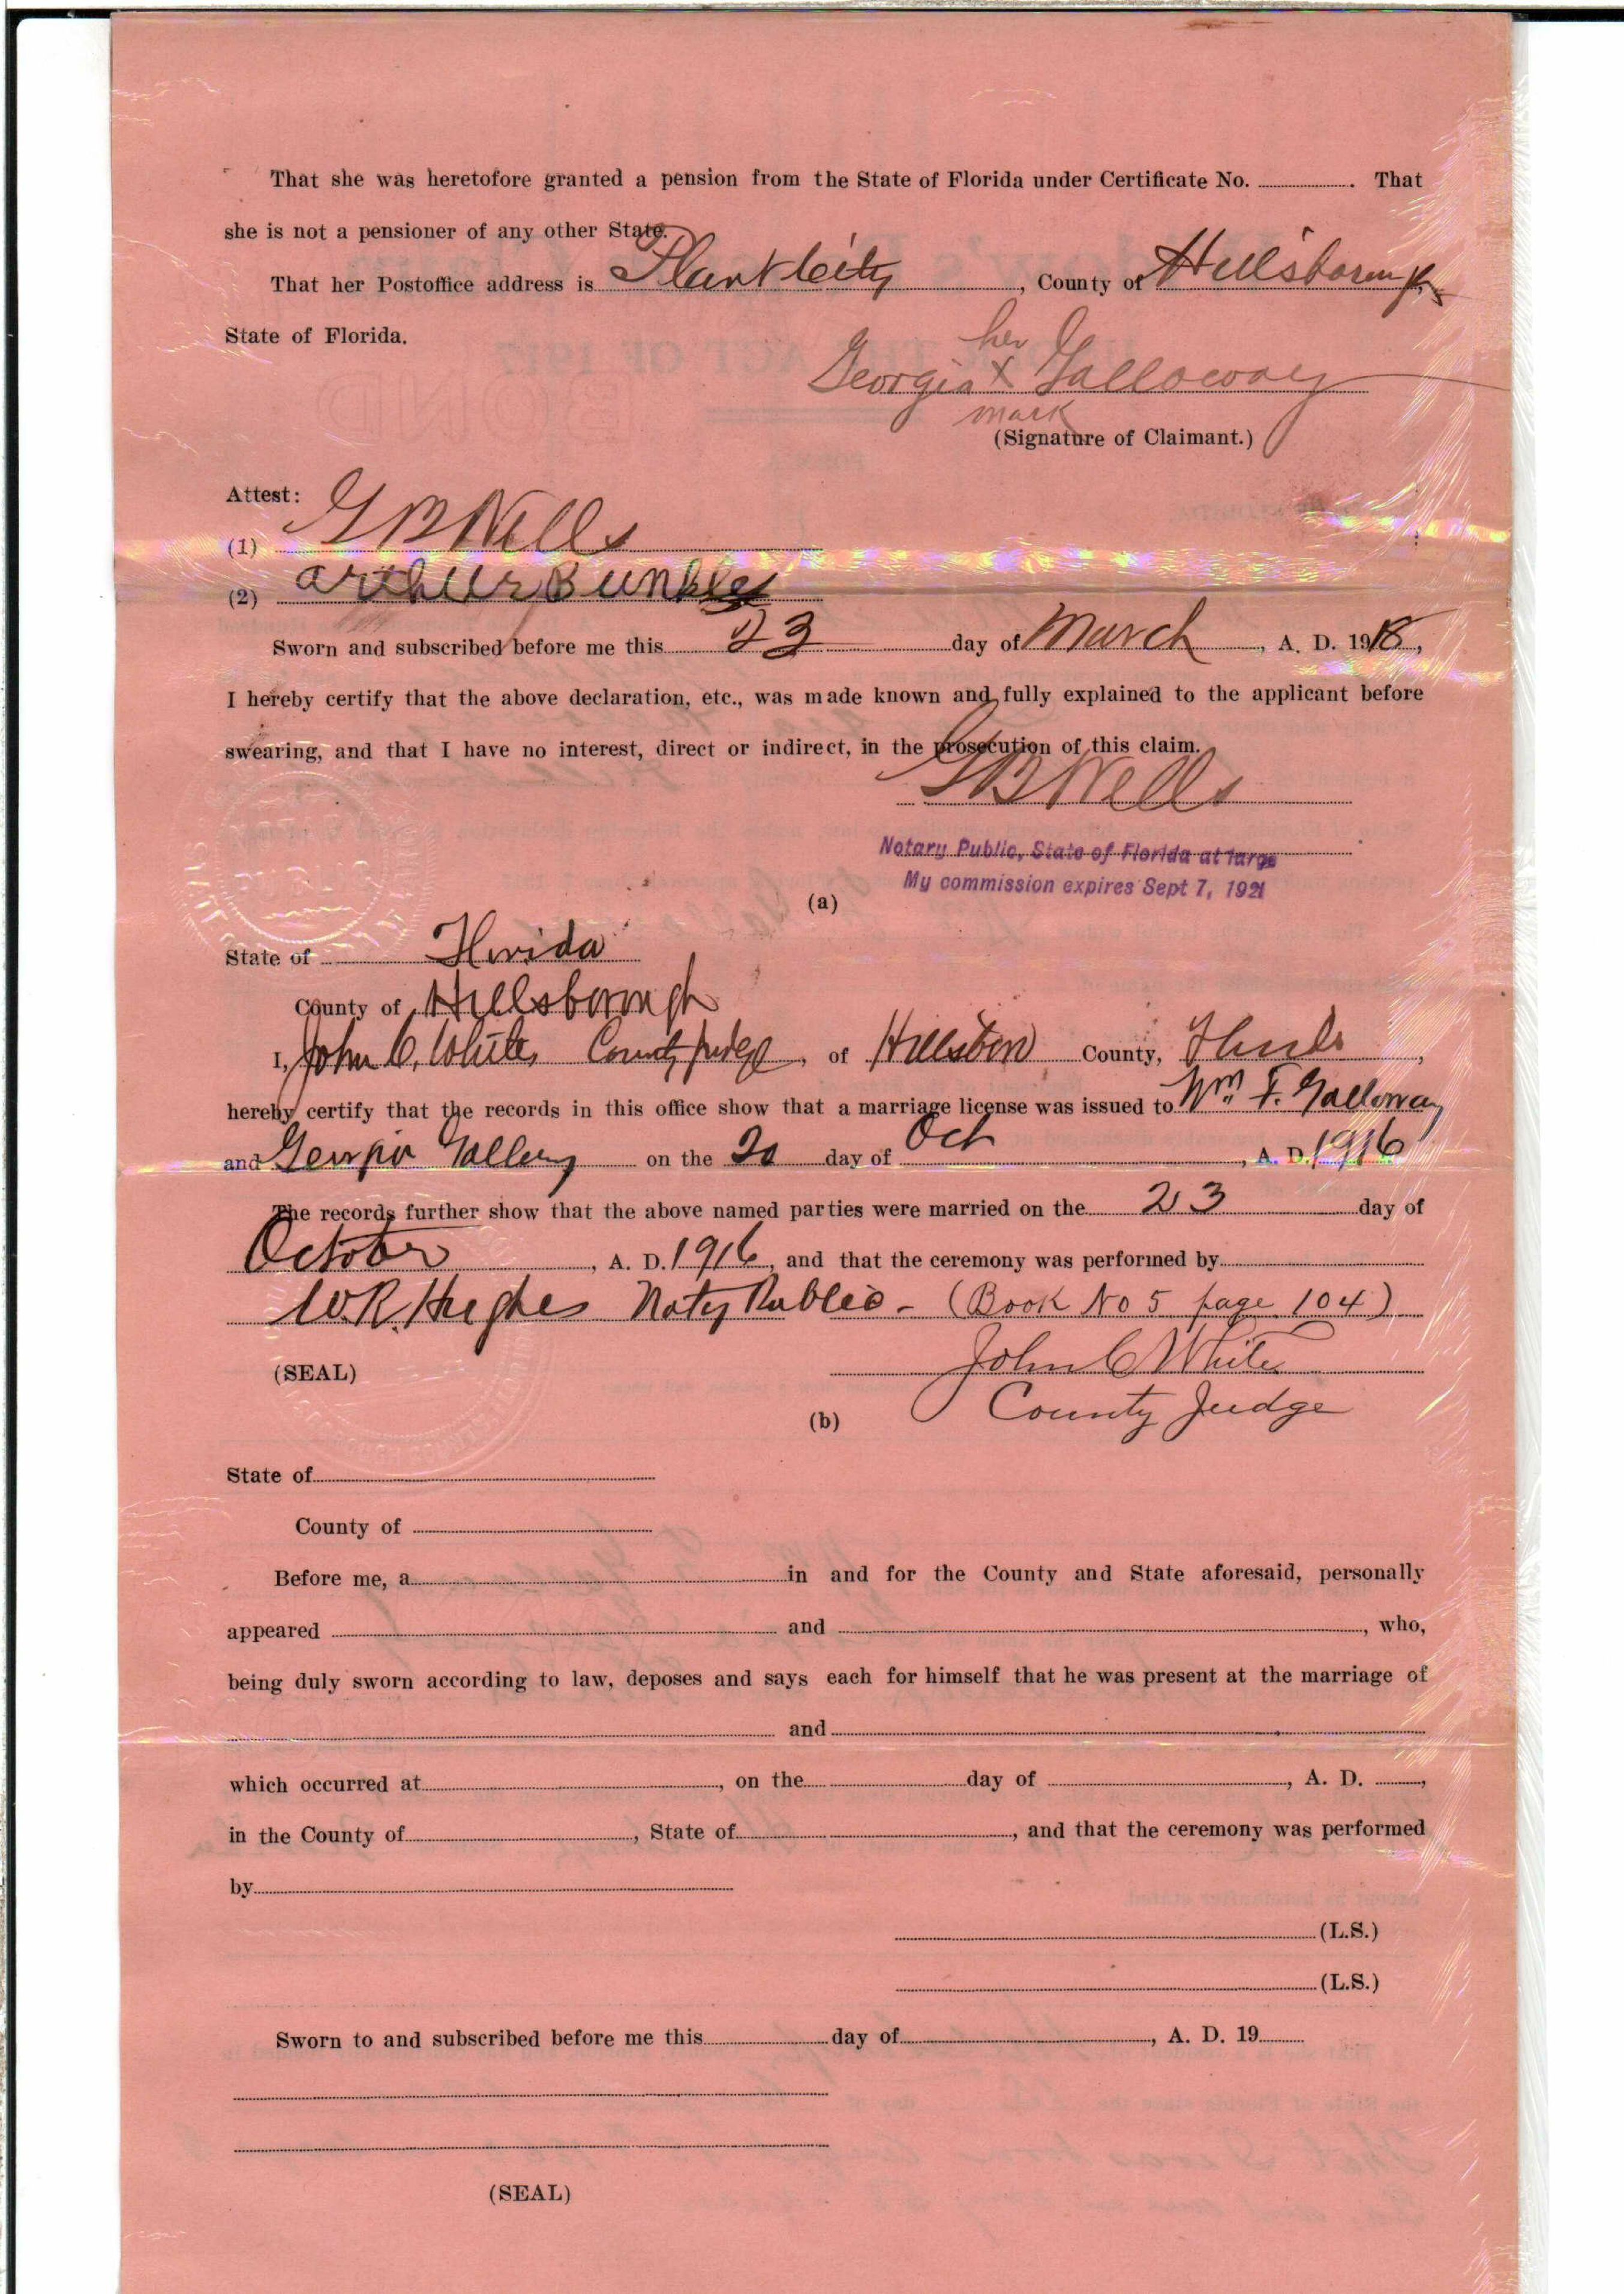 That she was heretofore granted a pension from the State of Florida under Certificate No. . That
she is not a pensioner of any other State.
That her Postoffice address is Plant City , County of Hillsborough
State of Florida.
her
Georgia X Galloway
mark
(Signature of Claimant.)
Attest:
(1) G B Wells
(2) Arthur
Sworn and subscribed before me this 23 day of March , A. D. 1918,
I hereby certify that the above declaration, etc., was made known and fully explained to the applicant before
swearing, and that I have no interest, direct or indirect, in the prosecution of this claim.
G B Wells
Notary Public, State of Florida at large
My commission expires Sept 7, 1921
(a)
State of Florida
County of Hillsborough
I, John C. White County Judge , of Hillsboro County, Florida ,
hereby certify that the records in this office show that a marriage license was issued to Wm. F. Galloway
and Georgia on the 20 day of Oct , A. D. 1916
The records further show that the above named parties were married on the 23 day of
October , A. D. 1916, and that the ceremony was performed by
W.R. Hughes Noty Public - (Book No 5 page 104)
(SEAL)
John C White
County Judge
(b)
State of
County of
Before me, a in and for the County and State aforesaid, personally
appeared and , who,
being duly sworn according to law, deposes and says each for himself that he was present at the marriage of
and
which occurred at , on the day of , A. D. ,
in the County of , State of , and that the ceremony was performed
by
(L.S.)
(L.S.)
Sworn to and subscribed before me this day of , A. D. 19
(SEAL)